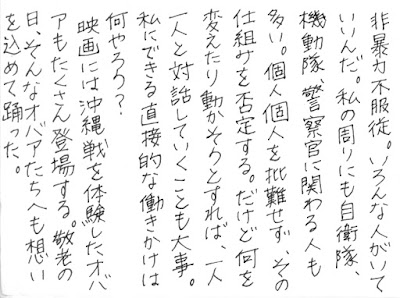 非暴力不服従。いろんな人がいて
いいんだ。私の周りにも自衛隊、
機動隊、警察官に関わる人も
多い。個人個人を批難せず、その
仕組みを否定する。だけど何を
変えたり動かそうとすれば、一人
一人と対話していくことも大事。
私にできる直接的な働きかけは
何やろう？
映画には沖縄戦を体験したオバ
アもたくさん登場する。敬老の
日、そんなオバアたちへも想い
を込めて踊った。